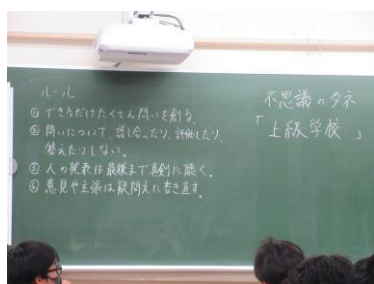 ルール
① できるだけたくさん問いを創る。
② 問いについて、話し合ったり、評価したり、
答えたりしない。
③ 人の発表は最後まで真剣に聴く。
④ 意見や主張は疑問文に書き直す。
不思議のタネ
「上級学校」